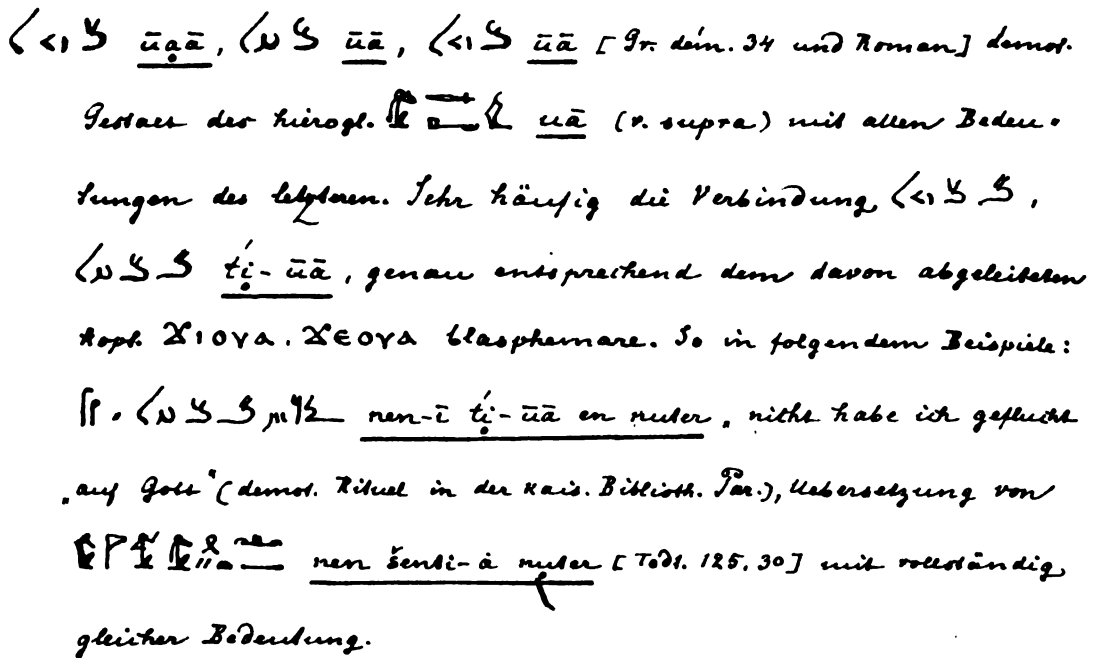 ūạā, ūā, ūā [Gr. dém. 34 und Roman] demot.
Gestalt des hierogl. uā (v. supra) mit allen Bedeu-
tungen des letzteren. Sehr häufig die Verbindung,
ṭ̌i-ūā, genau entsprechend dem davon abgeleiteten
kopt. ϪΙΟΥΑ. ϪΕΟΥΑ blasphemare. So in folgendem Beispiele:
nen-ī ṭ̌i-ūā en nuter „nicht habe ich geflucht
„auf Gott" (demot. Rituel in der Kais. Biblioth. Par.), Uebersetzung von
nen šenti-à nuter [Todt. 125, 30] mit vollständig
gleicher Bedeutung.